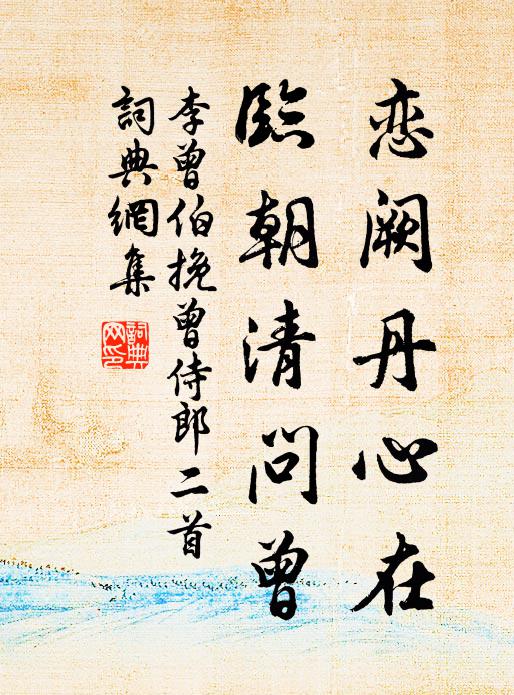 恋阙丹心在
臨朝清问曾
李曾伯挽曾侍郎二首
詞典網集
詞典网印